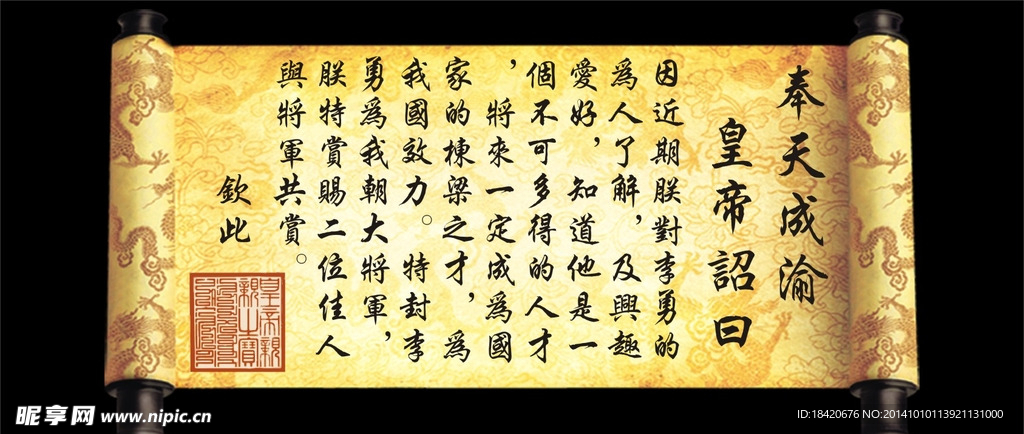 奉天成渝
皇帝詔曰
因近期朕對李勇的
為人了解，及興趣
愛好，知道他是一
個不可多得的人才
，將來一定成為國
家的棟梁之才，為
我國效力。特封李
勇為我朝大將軍，
朕特賞賜二位佳人
與將軍共賞。
欽此
皇帝親
親之寶
昵享网 www.nipic.cn
ID:18420676 NO:20141010113921131000